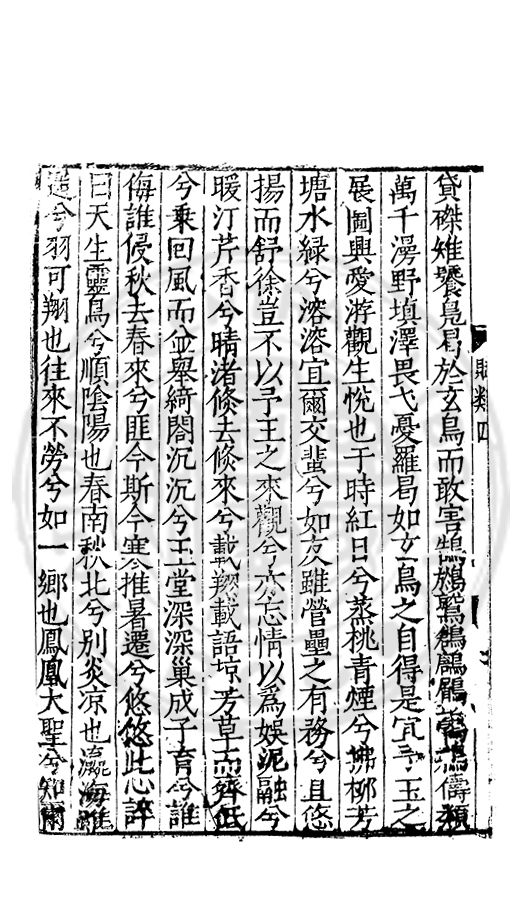 賦類四
貸磔雉饗鳧曷於玄鳥而敢害鵠鴇鷲鶴鸝鶻儔類
萬千漫野填澤畏弋憂羅曷如玄鳥之自得是宜予玉之
展圖興愛游觀生悅也于時紅日兮蒸桃青煙兮拂柳芳
塘水緑兮溶溶宜爾交蜚兮如友雖營壘之有務兮且悠
揚而舒徐豈不以予王之來觀兮亦忘情以爲娛泥融兮
暖汀芹香兮晴渚倏去倏來兮載翔載語掠芳草而齊低
兮乗回風而並舉綺閤沉沉兮玉堂深深巢成子育兮誰
侮誰侵秋去春來兮匪今斯今寒推暑遷兮悠悠此心誶
曰天生靈鳥兮順陰陽也春南秋北兮別炎凉也瀛海雖
遥兮羽可翔也往來不勞兮如一鄉也鳳凰大聖兮知爾